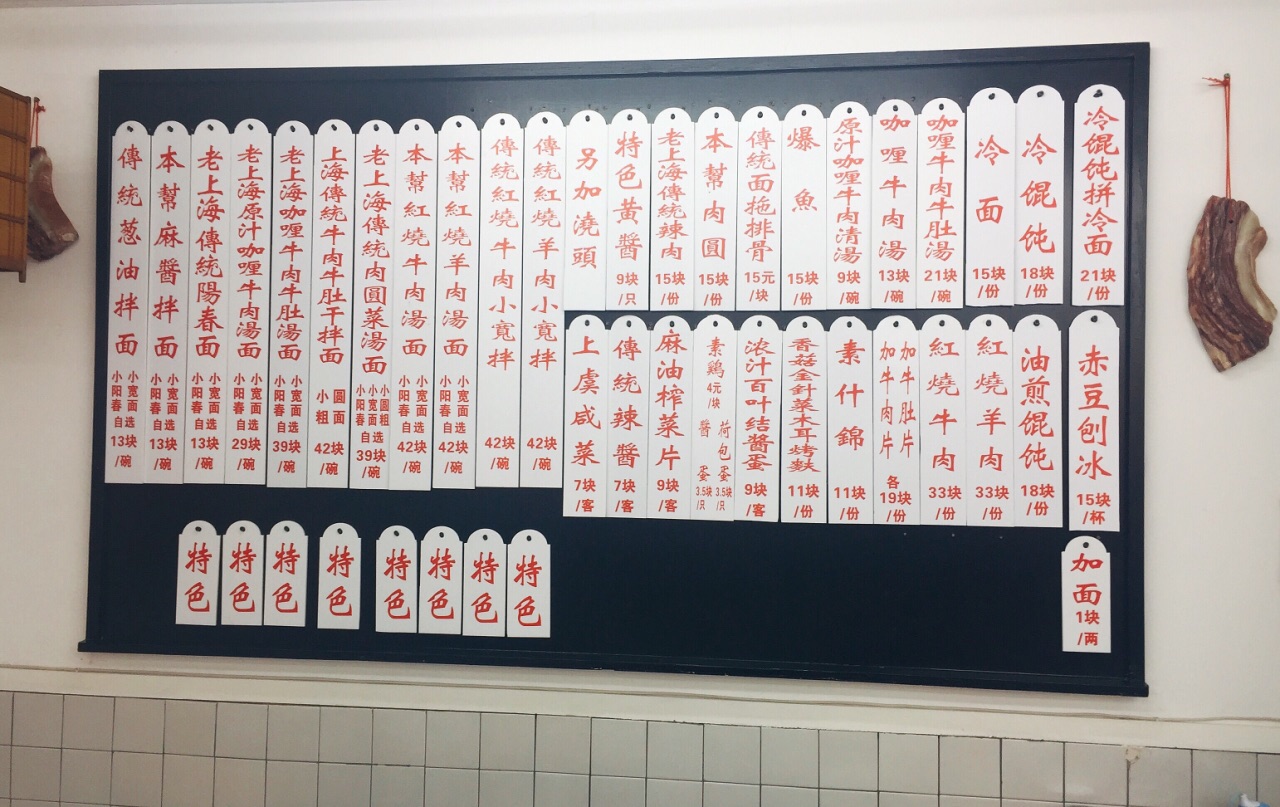 傳統葱油拌面 小阳春 小宽面 自选 13块/碗
本幫麻醬拌面 小阳春 小宽面 自选 13块/碗
老上海傳統陽春面 小阳春 小宽面 自选 13块/碗
老上海原汁咖喱牛肉湯面 小阳春 小宽面 自选 29块/碗
老上海咖喱牛肉牛肚湯面 小阳春 小宽面 自选 39块/碗
上海傳統牛肉牛肚干拌面 小粗 圆面 42块/碗
老上海傳統肉圓菜湯面 小阳春 小宽面 小圆粗 自选 39块/碗
本幫紅燒牛肉湯面 小阳春 小宽面 自选 42块/碗
本幫紅燒羊肉湯面 小阳春 小宽面 自选 42块/碗
傳統紅燒牛肉小寬拌 42块/碗
傳統紅燒羊肉小寬拌 42块/碗
另加澆頭
特色黃醬 9块/只
老上海傳統辣肉 15块/份
本幫肉圓 15块/份
傳統面拖排骨 15元/块
爆魚 15块/份
原汁咖喱牛肉清湯 9块/碗
咖喱牛肉湯 13块/碗
咖喱牛肉牛肚湯 21块/碗
冷面 15块/份
冷馄饨 18块/份
冷馄饨拼冷面 21块/份
上虞咸菜 7块/客
傳統辣醬 7块/客
麻油榨菜片 9块/客
素鶏 4元/块 醬蛋 3.5块/只 荷包蛋 3.5块/只
浓汁百叶结醬蛋 9块/客
香菇金針菜木耳烤麩 11块/份
素什錦 11块/份
加牛肉片 加牛肚片 各19块/份
紅燒牛肉 33块/份
紅燒羊肉 33块/份
油煎馄饨 18块/份
赤豆刨冰 15块/杯
特色
特色
特色
特色
特色
特色
特色
特色
加面 1块/两